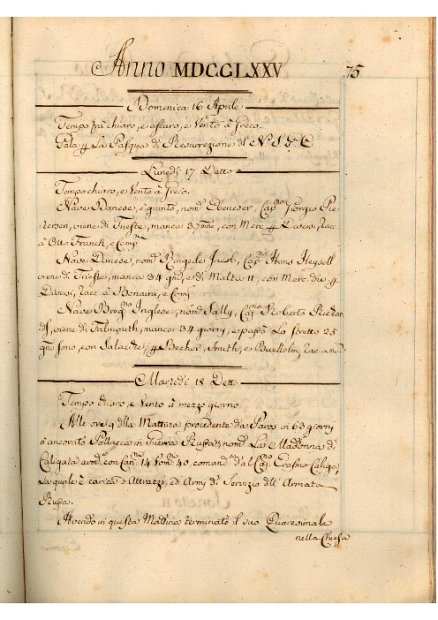 Anno MDCCLXXV 75
Domenica 16 Aprile
Tempo frà chiaro, e oscuro, e Vento à Greco.
Gala p la Pasqua di Resurrezione di N. S. G. C.
Lunedi 17. Detto
Tempo chiaro, e Vento à Greco.
Nave Danese, è giunto, nomta Ebeneser, Capno Giorgio Pe=
tersen, viene di Trieste, manca con Merc p Diversi, racc
à Otto Franck, e Compi
Nave Danese, nomta Jacob, Capno Hans
viene di Trieste, manca 34 gni, e di Malta 11, con Merc die p
Diversi, racc à e Compi
Nave Inglese, nomta Sally, Capno Roberto
viene di Falmouth, manca 34 giorni, e passò Lo stretto 25
gni sono, con p Becker, Smith, e racc
Martedi 18 Detto
Tempo chiaro, e Vento à mezzo giorno
Alle ore 9 della Mattina procedente da Paros in 63 giorni
à ancorato Pollacca in Guerra Russa, nomta La Madonna di
Caligata, con Cani 14 Uomi 40, comandta dal Capno Erasmo
La quale è carica d'Attrazzi, ed Armi di Servizio dell' Armata
Russa.
Avendo in questa Mattina terminato il suo Quaresimale
nella Chiesa